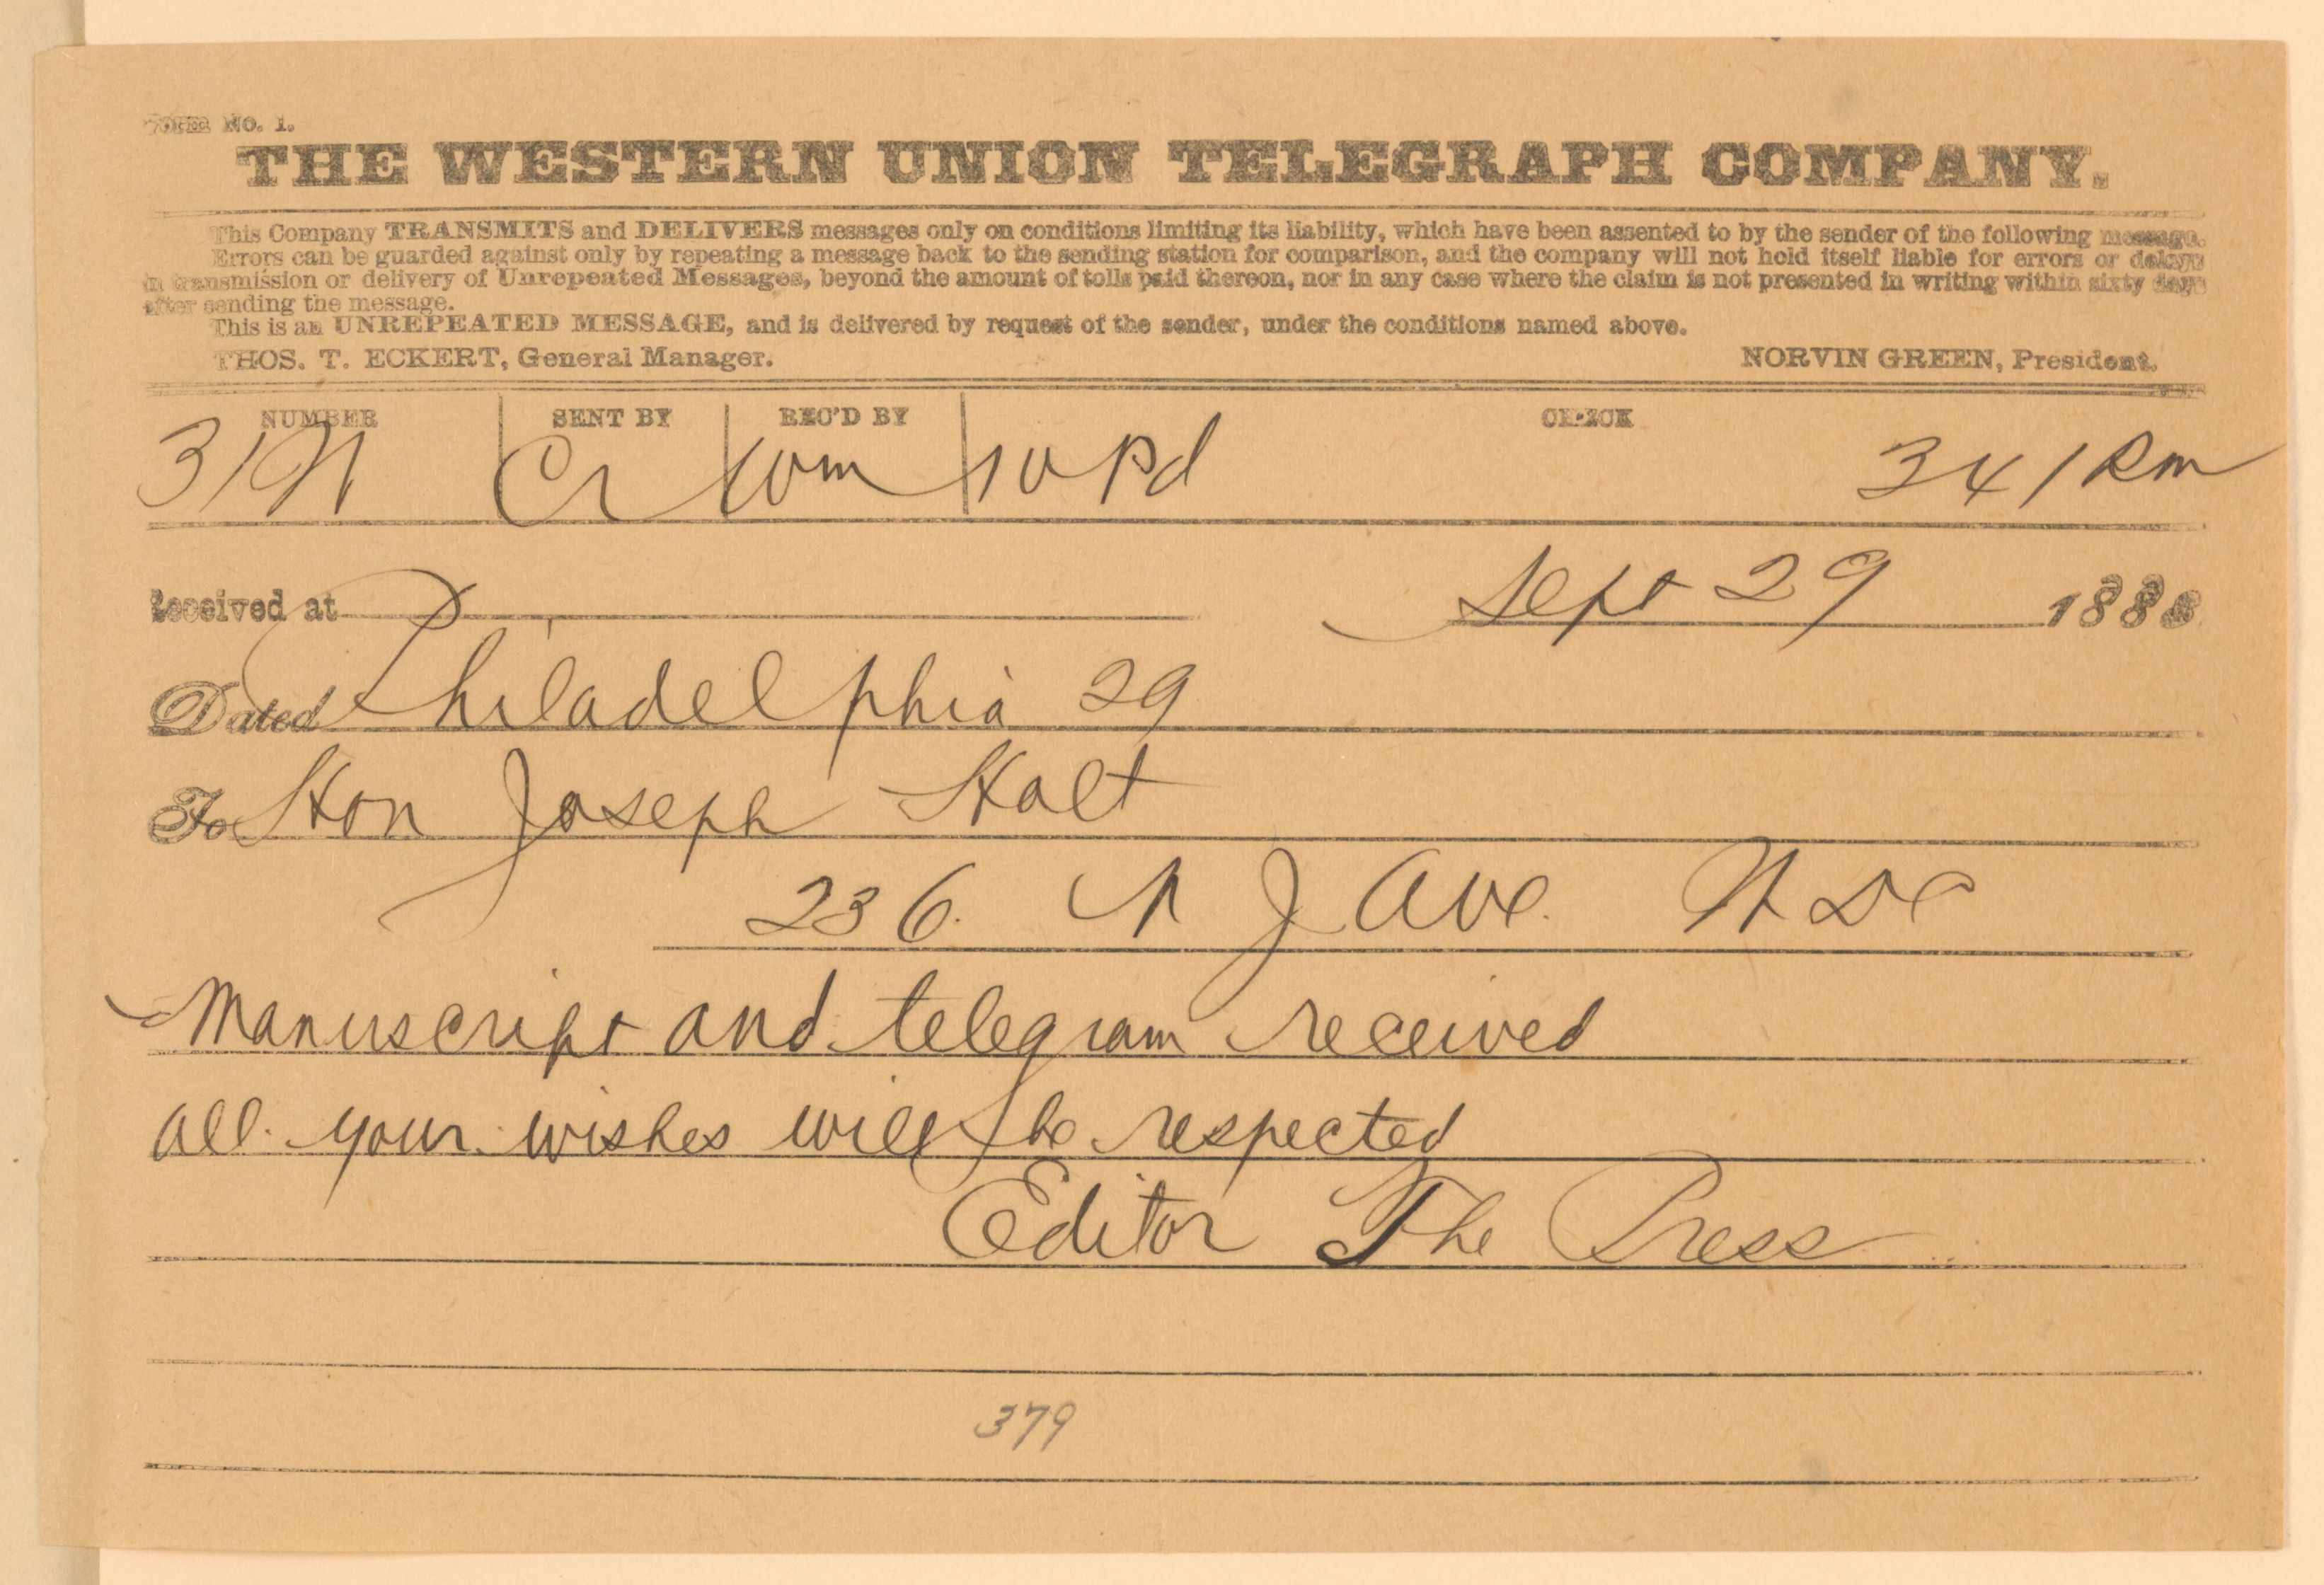 Form No. 1.
THE WESTERN UNION TELEGRAPH COMPANY.
This Company TRANSMITS and DELIVERS messages only on conditions limiting its liability, which have been assented to by the sender of the following message.
Errors can be guarded against only by repeating a message back to the sending station for comparison, and the company will not hold itself liable for errors or delays
in transmission or delivery of Unrepeated Messages, beyond the amount of tolls paid thereon, nor in any case where the claim is not presented in writing within sixty days
after sending the message.
This is an UNREPEATED MESSAGE, and is delivered by request of the sender, under the conditions named above.
THOS. T. ECKERT, General Manager. NORVIN GREEN, President.
NUMBER SENT BY REC'D BY CHECK
10 Pd
Received at Sept 29 1888
Dated Philadelphia 29
To Hon Joseph Holt
236. N J Ave
Manuscript and telegram received
all your wishes will be respected
Editor The Press
379